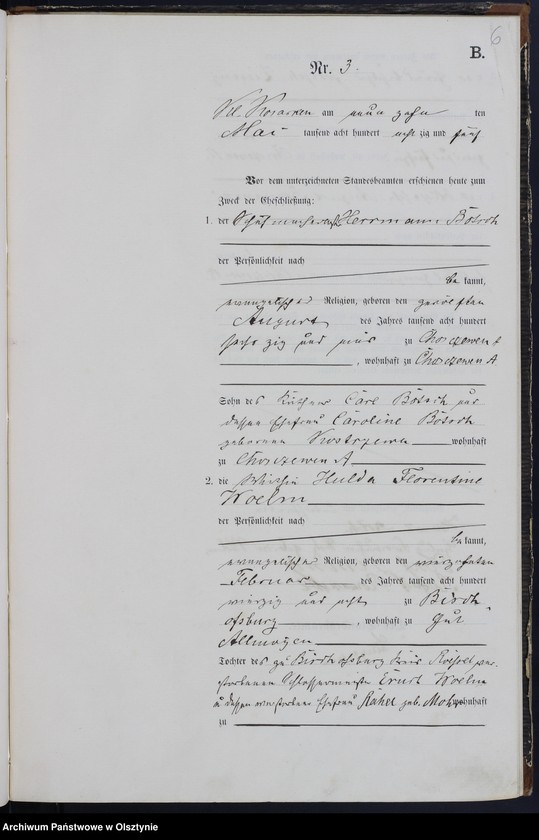 6
B.
Nr. 3.
Kl. Kosarken am neun zehn ten
Mai tausend acht hundert acht zig und fünf
Vor dem unterzeichneten Standesbeamten erschienen heute zum
Zweck der Eheschließung:
1. der Herrmann Bötsch
der Persönlichkeit nach
be kannt,
evangelischer Religion, geboren den zwoelften
August des Jahres tausend acht hundert
sechs zig und zu Choszewen A
, wohnhaft zu Choszewen A.
Sohn des Carl Bötsch und
dessen Ehefrau Caroline Bötsch
geborenen Kostrzewa wohnhaft
zu Choszewen A
2. die Wirthin Hulda Florentine
Woelm
der Persönlichkeit nach
be kannt,
evangelischer Religion, geboren den vierzehnten
Februar des Jahres tausend acht hundert
vierzig und acht zu Bisch
ofsburg , wohnhaft zu Gut
Allmoyen
Tochter des zu Bischofsburg Kreis Roessel ver-
storbenen Schlossermeister Ernst Woelm
u dessen verstorbene Ehefrau Rahel geb. Mohr wohnhaft
zu
Archiwum Państwowe w Olsztynie